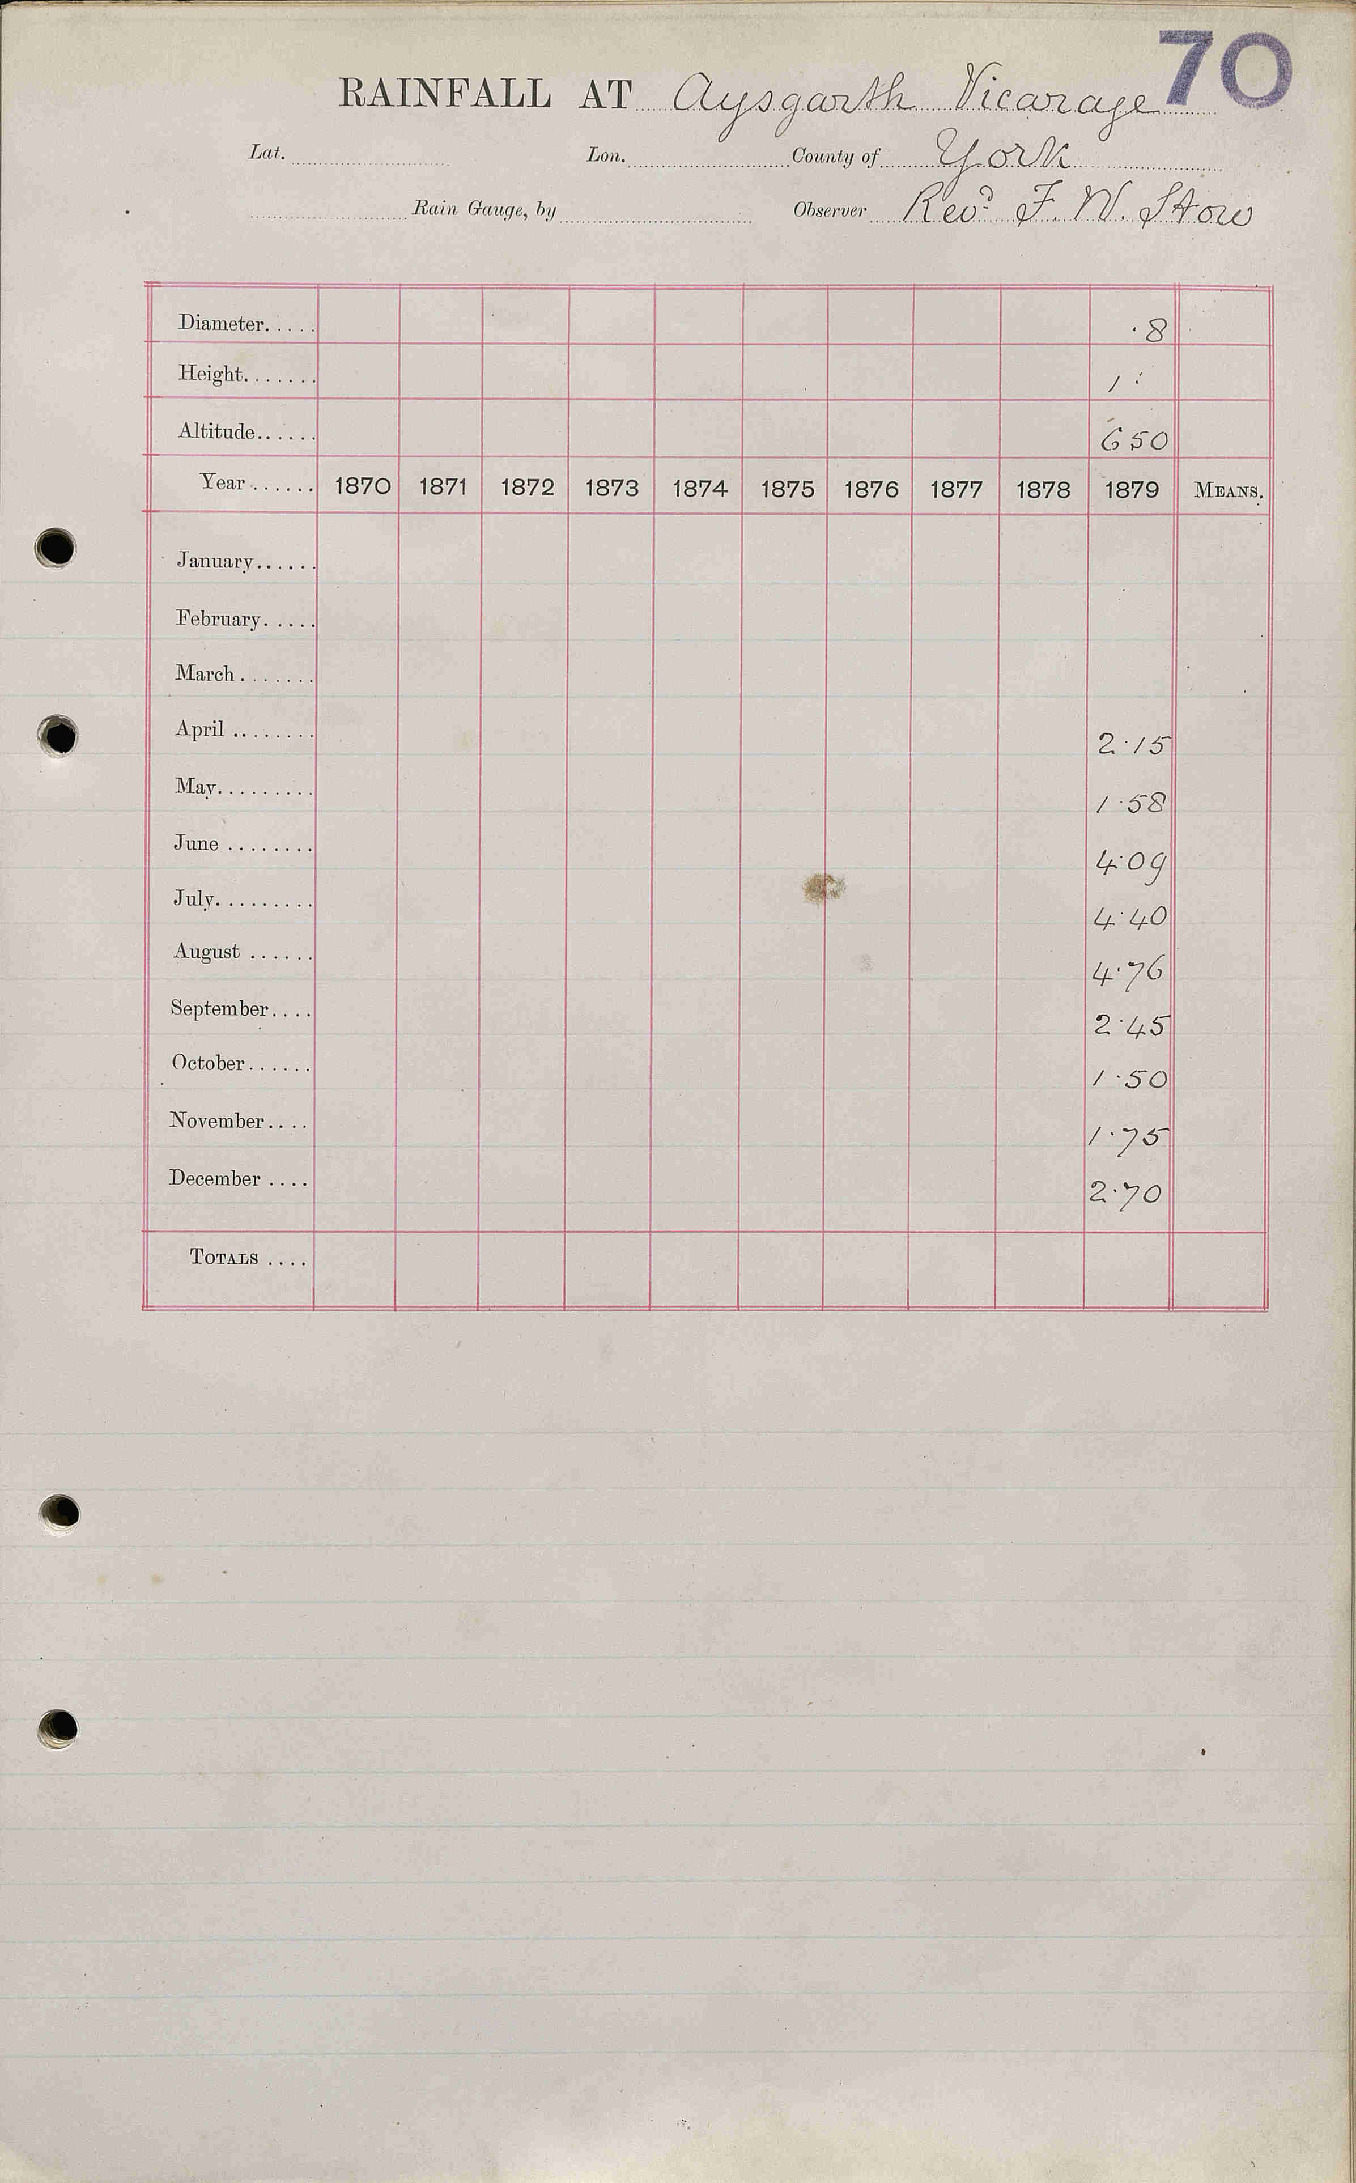 70
RAINFALL AT Aysgarth Vicarage
Lat. Lon. County of York
Rain Gauge, by Observer Revd. F. W. Stow
Diameter..... ·8
Height....... 1·
Altitude...... 650
Year....... 1870 1871 1872 1873 1874 1875 1876 1877 1878 1879 MEANS.
January......
February.....
March.......
April ........ 2·15
May......... 1·58
June ........ 4·09
July......... 4·40
August ...... 4·76
September.... 2·45
October...... 1·50
November.... 1·75
December .... 2·70
TOTALS ....